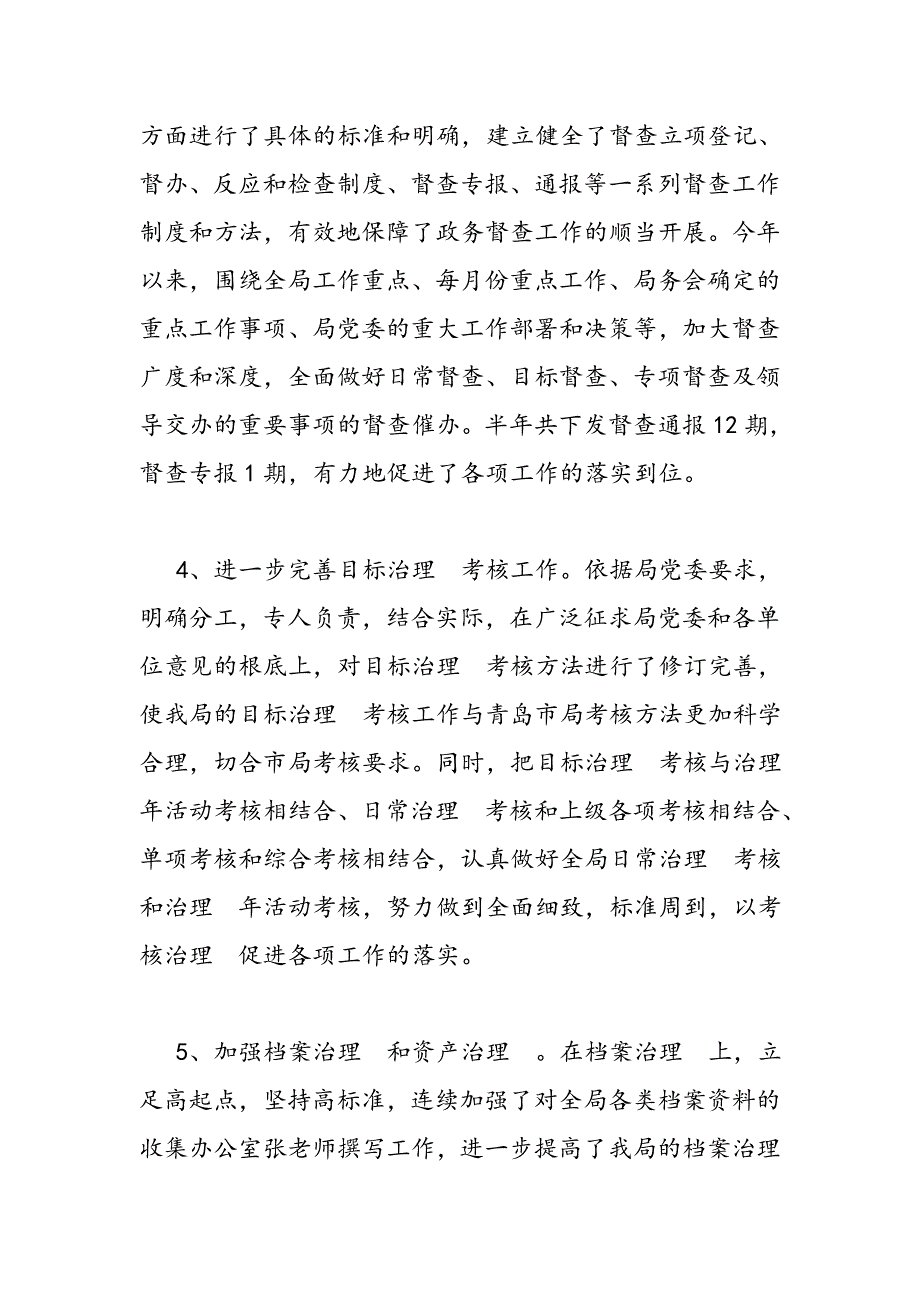 方面进行了具体的标准和明确，建立健全了督查立项登记、
督办、反应和检查制度、督查专报、通报等一系列督查工作
制度和方法，有效地保障了政务督查工作的顺当开展。今年
以来，围绕全局工作重点、每月份重点工作、局务会确定的
重点工作事项、局党委的重大工作部署和决策等，加大督查
广度和深度，全面做好日常督查、目标督查、专项督查及领
导交办的重要事项的督查催办。半年共下发督查通报 12 期，
督查专报 1 期，有力地促进了各项工作的落实到位。
4、进一步完善目标治理　考核工作。依据局党委要求，
明确分工，专人负责，结合实际，在广泛征求局党委和各单
位意见的根底上，对目标治理　考核方法进行了修订完善，
使我局的目标治理　考核工作与青岛市局考核方法更加科学
合理，切合市局考核要求。同时，把目标治理　考核与治理
年活动考核相结合、日常治理　考核和上级各项考核相结合、
单项考核和综合考核相结合，认真做好全局日常治理　考核
和治理　年活动考核，努力做到全面细致，标准周到，以考
核治理　促进各项工作的落实。
5、加强档案治理　和资产治理　。在档案治理　上，立
足高起点，坚持高标准，连续加强了对全局各类档案资料的
收集办公室张老师撰写工作，进一步提高了我局的档案治理